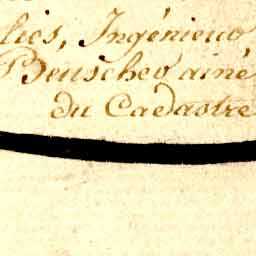 liés, Ingénieur
Beuscher ainé
du Cadastre